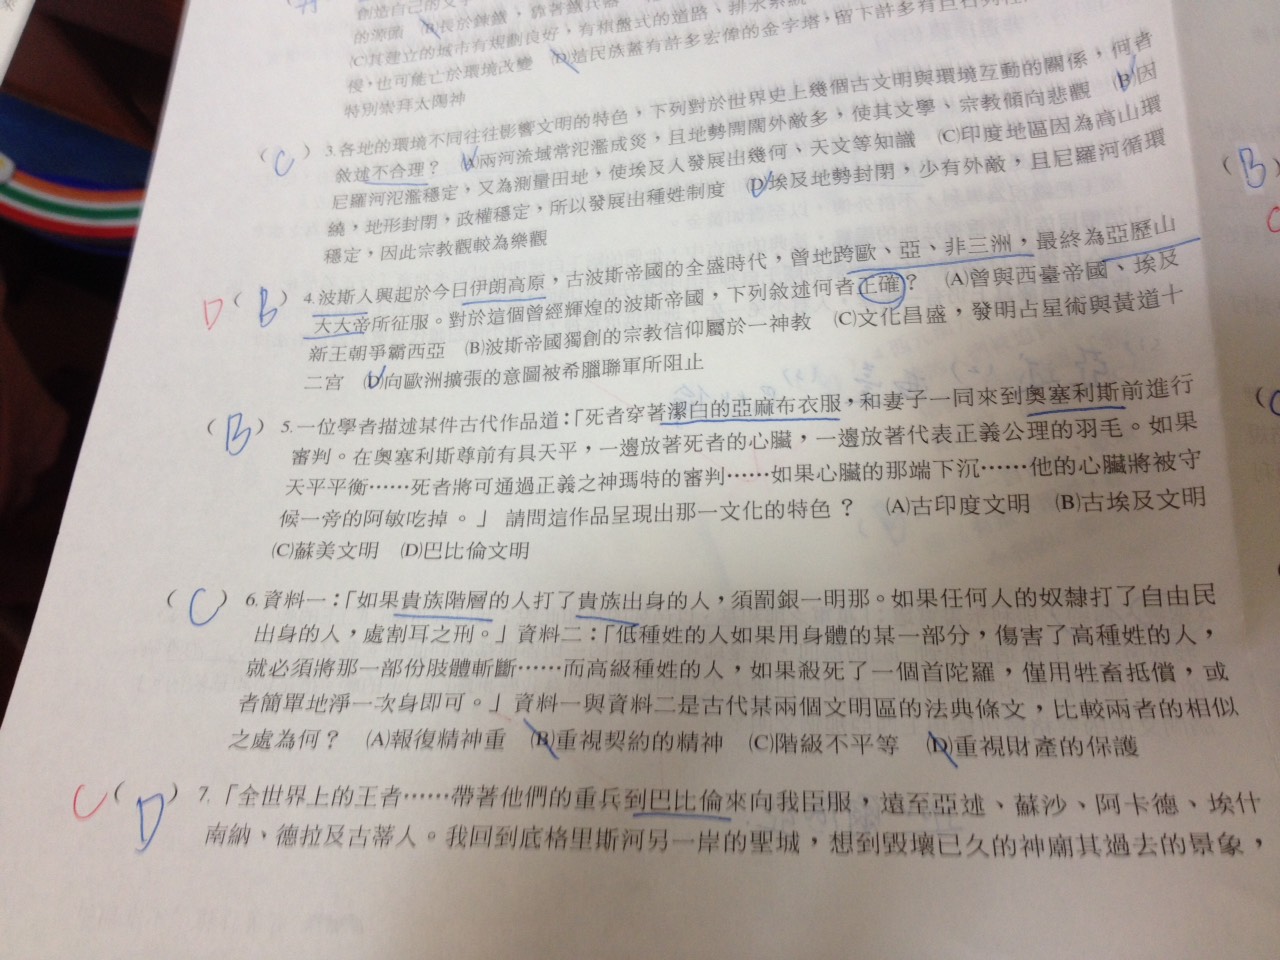 創造自己的文字
的源頭 (B)長於鍊鐵,靠著鐵兵器
(C)其建立的城市有規劃良好,有棋盤式的道路、排水系統
侵,也可能亡於環境改變 (D)這民族蓋有許多宏偉的金字塔,留下許多有巨石
特別崇拜太陽神
( C ) 3.各地的環境不同往往影響文明的特色,下列對於世界史上幾個古文明與環境互動的關係,何者
敘述不合理? (A)兩河流域常氾濫成災,且地勢開闊外敵多,使其文學、宗教傾向悲觀 (B)因
尼羅河氾濫穩定,又為測量田地,使埃及人發展出幾何、天文等知識 (C)印度地區因為高山環
繞,地形封閉,政權穩定,所以發展出種姓制度 (D)埃及地勢封閉,少有外敵,且尼羅河循環
穩定,因此宗教觀較為樂觀
D ( B ) 4.波斯人興起於今日伊朗高原,古波斯帝國的全盛時代,曾地跨歐、亞、非三洲,最終為亞歷山
大大帝所征服。對於這個曾經輝煌的波斯帝國,下列敘述何者正確? (A)曾與西臺帝國、埃及
新王朝爭霸西亞 (B)波斯帝國獨創的宗教信仰屬於一神教 (C)文化昌盛,發明占星術與黃道十
二宮 (D)向歐洲擴張的意圖被希臘聯軍所阻止
( B ) 5.一位學者描述某件古代作品道:「死者穿著潔白的亞麻布衣服,和妻子一同來到奧塞利斯前進行
審判。在奧塞利斯尊前有具天平,一邊放著死者的心臟,一邊放著代表正義公理的羽毛。如果
天平平衡……死者將可通過正義之神瑪特的審判……如果心臟的那端下沉……他的心臟將被守
候一旁的阿敏吃掉。」 請問這作品呈現出那一文化的特色? (A)古印度文明 (B)古埃及文明
(C)蘇美文明 (D)巴比倫文明
( C ) 6.資料一:「如果貴族階層的人打了貴族出身的人,須罰銀一明那。如果任何人的奴隸打了自由民
出身的人,處割耳之刑。」資料二:「低種姓的人如果用身體的某一部分,傷害了高種姓的人,
就必須將那一部份肢體斬斷……而高級種姓的人,如果殺死了一個首陀羅,僅用牲畜抵償,或
者簡單地淨一次身即可。」資料一與資料二是古代某兩個文明區的法典條文,比較兩者的相似
之處為何? (A)報復精神重 (B)重視契約的精神 (C)階級不平等 (D)重視財產的保護
C ( D ) 7.「全世界上的王者……帶著他們的重兵到巴比倫來向我臣服,遠至亞述、蘇沙、阿卡德、埃什
南納、德拉及古蒂人。我回到底格里斯河另一岸的聖城,想到毀壞已久的神廟其過去的景象,
( B )